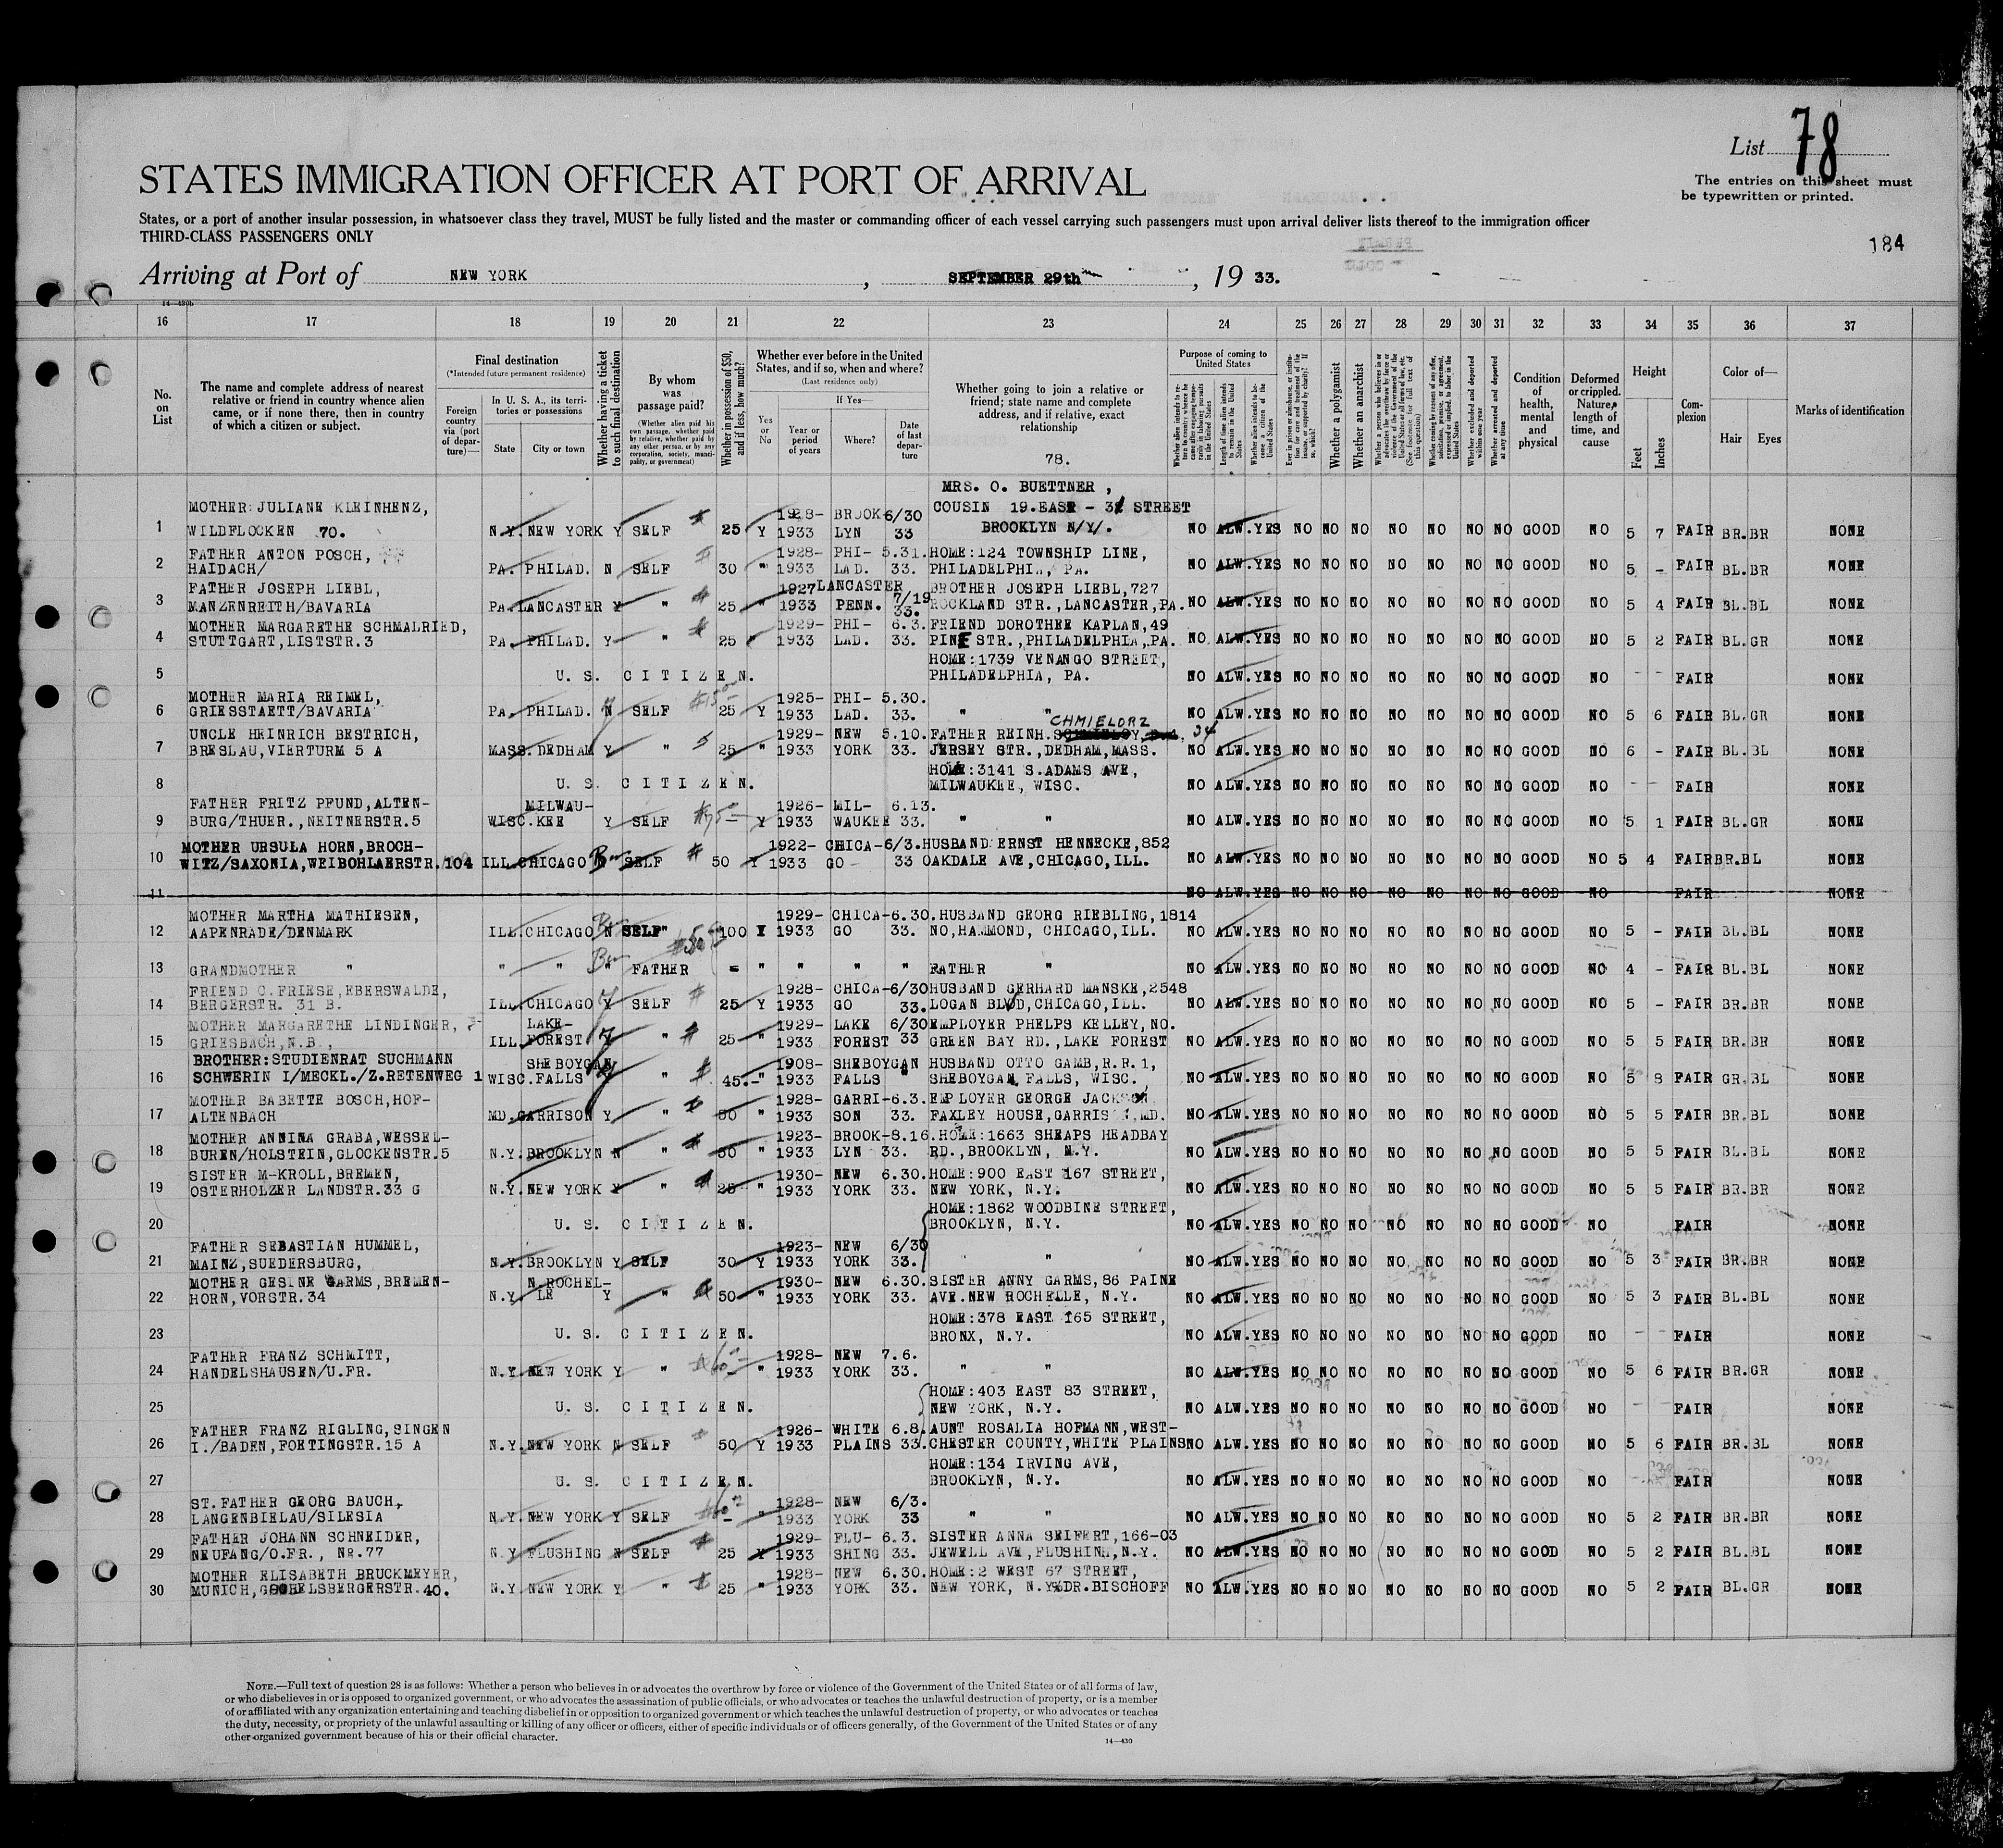 List 78
The entries on this sheet must
be typewritten or printed.
STATES IMMIGRATION OFFICER AT PORT OF ARRIVAL
States, or a port of another insular possession, in whatsoever class they travel, MUST be fully listed and the master or commanding officer of each vessel carrying such passengers must upon arrival deliver lists thereof to the immigration officer
THIRD-CLASS PASSENGERS ONLY
184
Arriving at Port of NEW YORK, SEPTEMBER 29th, 19 33.
14—430b
16 17 18 19 20 21 22 23 24 25 26 27 28 29 30 31 32 33 34 35 36 37
No. on List
The name and complete address of nearest relative or friend in country whence alien came, or if none there, then in country of which a citizen or subject.
Final destination
(*Intended future permanent residence)
Foreign country via (port of departure)—
In U. S. A., its territories or possessions
State
City or town
Whether having a ticket to such final destination
By whom was passage paid?
(Whether alien paid his own passage, whether paid by relative, whether paid by any other person, or by any corporation, society, municipality, or government)
Whether in possession of $50, and if less, how much?
Whether ever before in the United States, and if so, when and where?
(Last residence only)
Yes or No
If Yes—
Year or period of years
Where?
Date of last departure
Whether going to join a relative or friend; state name and complete address, and if relative, exact relationship
78.
Purpose of coming to United States
Whether a polygamist
Whether an anarchist
Whether arrested and deported at any time
Condition of health, mental and physical
Deformed or crippled. Nature, length of time, and cause
Height
Feet
Inches
Complexion
Color of—
Hair
Eyes
Marks of identification
MRS. O. BUETTNER,
MOTHER:JULIANE KLEINHENZ, 1928- BROOK- 6/30 COUSIN 19.EAST - 31 STREET
1 WILDFLOCKEN 70. N.Y. NEW YORK Y SELF 25 Y 1933 LYN 33 BROOKLYN N/Y/. NO ALW. YES NO NO NO NO NO NO NO GOOD NO 5 7 FAIR BR.BR NONE
FATHER ANTON POSCH, 1928- PHI- 5.31. HOME:124 TOWNSHIP LINE,
2 HAIDACH/ PA. PHILAD. N SELF 30 " 1933 LAD. 33. PHILADELPHIA, PA. NO ALW. YES NO NO NO NO NO NO NO GOOD NO 5 - FAIR BL.BR NONE
FATHER JOSEPH LIEBL, 1927 LANCASTER 7/19 BROTHER JOSEPH LIEBL,727
3 MANZENREITH/BAVARIA PA. LANCASTER Y " 25 " 1933 PENN. 33. ROCKLAND STR.,LANCASTER,PA. NO ALW. YES NO NO NO NO NO NO NO GOOD NO 5 4 FAIR BL.BL NONE
MOTHER MARGARETHE SCHMALRIED, 1929- PHI- 6.3. FRIEND DOROTHEE KAPLAN,49
4 STUTTGART,LISTSTR.3 PA. PHILAD. Y " 25 " 1933 LAD. 33. PINE STR.,PHILADELPHIA,PA. NO ALW. YES NO NO NO NO NO NO NO GOOD NO 5 2 FAIR BL.GR NONE
HOME:1739 VENANGO STREET,
5 U. S. CITIZEN. PHILADELPHIA, PA. NO ALW. YES NO NO NO NO NO NO NO GOOD NO - - FAIR NONE
MOTHER MARIA REIMEL, 1925- PHI- 5.30.
6 GRIESSTAETT/BAVARIA PA. PHILAD. N SELF 25 Y 1933 LAD. 33. " " NO ALW. YES NO NO NO NO NO NO NO GOOD NO 5 6 FAIR BL.GR NONE
UNCLE HEINRICH BESTRICH, 1929- NEW 5.10. FATHER REINH. CHMIELORZ 34
7 BRESLAU,VIERTURM 5 A MASS. DEDHAM Y " 25 " 1933 YORK 33. JERSEY STR.,DEDHAM,MASS. NO ALW. YES NO NO NO NO NO NO NO GOOD NO 6 - FAIR BL.BL NONE
HOME:3141 S.ADAMS AVE,
8 U. S. CITIZEN. MILWAUKEE, WISC. NO ALW. YES NO NO NO NO NO NO NO GOOD NO - - FAIR NONE
FATHER FRITZ PFUND,ALTEN- MILWAU- 1926- MIL- 6.13.
9 BURG/THUER.,NEITNERSTR.5 WISC. KEE Y SELF $75- Y 1933 WAUKEE 33. " " NO ALW. YES NO NO NO NO NO NO NO GOOD NO 5 1 FAIR BL.GR NONE
MOTHER URSULA HORN,BROCH- 1922- CHICA- 6/3. HUSBAND ERNST HENNECKE,852
10 WITZ/SAXONIA,WEIBOHLAERSTR.104 ILL. CHICAGO SELF 50 Y 1933 GO 33 OAKDALE AVE,CHICAGO,ILL. NO ALW. YES NO NO NO NO NO NO NO GOOD NO 5 4 FAIR BR.BL NONE
11 NO ALW. YES NO NO NO NO NO NO NO GOOD NO FAIR NONE
MOTHER MARTHA MATHIESEN, 1929- CHICA- 6.30. HUSBAND GEORG RIEBLING,1814
12 AAPENRADE/DENMARK ILL. CHICAGO N SELF" 100 Y 1933 GO 33. NO,HAMMOND, CHICAGO,ILL. NO ALW. YES NO NO NO NO NO NO NO GOOD NO 5 - FAIR BL.BL NONE
13 GRANDMOTHER " " " " FATHER - " " " " FATHER " NO ALW. YES NO NO NO NO NO NO NO GOOD NO 4 - FAIR BL.BL NONE
FRIEND C.FRIESE,EBERSWALDE, 1928- CHICA- 6/30 HUSBAND GERHARD MANSKE,2548
14 BERGERSTR. 31 B. ILL. CHICAGO Y SELF 25 Y 1933 GO 33. LOGAN BLVD,CHICAGO,ILL. NO ALW. YES NO NO NO NO NO NO NO GOOD NO 5 - FAIR BR.BR NONE
MOTHER MARGARETHE LINDINGER, LAKE- 1929- LAKE 6/30 EMPLOYER PHELPS KELLEY,NO.
15 GRIESBACH,N.B., ILL. FOREST Y " 25 " 1933 FOREST 33 GREEN BAY RD.,LAKE FOREST NO ALW. YES NO NO NO NO NO NO NO GOOD NO 5 5 FAIR BR.BR NONE
BROTHER:STUDIENRAT SUCHMANN SHEBOYGAN 1908- SHEBOYGAN HUSBAND OTTO GAMB,R.R.1,
16 SCHWERIN I/MECKL./Z.RETENWEG 1 WISC. FALLS " 45.- " 1933 FALLS " SHEBOYGAN FALLS, WISC. NO ALW. YES NO NO NO NO NO NO NO GOOD NO 5 8 FAIR GR.BL NONE
MOTHER BABETTE BOSCH,HOF- 1928- GARRI- 6.3. EMPLOYER GEORGE JACKSON
17 ALTENBACH MD. GARRISON Y " 50 " 1933 SON 33. FAXLEY HOUSE,GARRISON,MD. NO ALW. YES NO NO NO NO NO NO NO GOOD NO 5 5 FAIR BR.BL NONE
MOTHER ANNINA GRABA,WESSEL- 1923- BROOK- 8.16. HOME:1663 SHEAPS HEADBAY
18 BUREN/HOLSTEIN,GLOCKENSTR.5 N.Y. BROOKLYN N " 30 " 1933 LYN 33. RD.,BROOKLYN, N.Y. NO ALW. YES NO NO NO NO NO NO NO GOOD NO 5 5 FAIR BL.BL NONE
SISTER M-KROLL,BREMEN, 1930- NEW 6.30. HOME:900 EAST 167 STREET,
19 OSTERHOLZER LANDSTR.33 G N.Y. NEW YORK Y " 25 " 1933 YORK 33. NEW YORK, N.Y. NO ALW. YES NO NO NO NO NO NO NO GOOD NO 5 5 FAIR BR.BR NONE
HOME:1862 WOODBINE STREET,
20 U. S. CITIZEN. BROOKLYN, N.Y. NO ALW. YES NO NO NO NO NO NO NO GOOD NO FAIR NONE
FATHER SEBASTIAN HUMMEL, 1923- NEW 6/30
21 MAINZ,SUEDERSBURG, N.Y. BROOKLYN Y SELF 30 Y 1933 YORK 33. " " NO ALW. YES NO NO NO NO NO NO NO GOOD NO 5 3 FAIR BR.BR NONE
MOTHER GESINE GARMS,BREMEN- N.ROCHEL- 1930- NEW 6.30. SISTER ANNY GARMS,86 PAINE
22 HORN,VORSTR.34 N.Y. LE Y " 50 " 1933 YORK 33. AVE.NEW ROCHELLE, N.Y. NO ALW. YES NO NO NO NO NO NO NO GOOD NO 5 3 FAIR BL.BL NONE
HOME:378 EAST 165 STREET,
23 U. S. CITIZEN. BRONX, N.Y. NO ALW. YES NO NO NO NO NO NO NO GOOD NO - - FAIR NONE
FATHER FRANZ SCHMITT, 1928- NEW 7.6.
24 HANDELSHAUSEN/U.FR. N.Y. NEW YORK Y " " 1933 YORK 33. " " NO ALW. YES NO NO NO NO NO NO NO GOOD NO 5 6 FAIR BR.GR NONE
HOME:403 EAST 83 STREET,
25 U. S. CITIZEN. NEW YORK, N.Y. NO ALW. YES NO NO NO NO NO NO NO GOOD NO FAIR NONE
FATHER FRANZ RIGLING,SINGEN 1926- WHITE 6.8. AUNT ROSALIA HOFMANN,WEST-
26 I./BADEN,FORTINGSTR.15 A N.Y. NEW YORK N SELF 50 Y 1933 PLAINS 33. CHESTER COUNTY,WHITE PLAINS NO ALW. YES NO NO NO NO NO NO NO GOOD NO 5 6 FAIR BR.BL NONE
HOME:134 IRVING AVE,
27 U. S. CITIZEN. BROOKLYN, N.Y. NO ALW. YES NO NO NO NO NO NO NO GOOD NO FAIR NONE
ST.FATHER GEORG BAUCH, 1928- NEW 6/3.
28 LANGENBIELAU/SILESIA N.Y. NEW YORK Y SELF - " 1933 YORK 33 " " NO ALW. YES NO NO NO NO NO NO NO GOOD NO 5 2 FAIR BR.BR NONE
FATHER JOHANN SCHNEIDER, 1929- FLU- 6.3. SISTER ANNA SEIFERT,166-03
29 NEUFANG/O.FR., NR.77 N.Y. FLUSHING N SELF 25 Y 1933 SHING 33. JEWELL AVE,FLUSHING,N.Y. NO ALW. YES NO NO NO NO NO NO NO GOOD NO 5 2 FAIR BL.BL NONE
MOTHER ELISABETH BRUCKMEYER, 1928- NEW 6.30. HOME:2 WEST 67 STREET,
30 MUNICH, 40. N.Y. NEW YORK Y " 25 " 1933 YORK 33. NEW YORK, N.Y.%DR.BISCHOFF NO ALW. YES NO NO NO NO NO NO NO GOOD NO 5 2 FAIR BL.GR NONE
NOTE.—Full text of question 28 is as follows: Whether a person who believes in or advocates the overthrow by force or violence of the Government of the United States or of all forms of law,
or who disbelieves in or is opposed to organized government, or who advocates the assassination of public officials, or who advocates or teaches the unlawful destruction of property, or is a member
of or affiliated with any organization entertaining and teaching disbelief in or opposition to organized government or which teaches the unlawful destruction of property, or who advocates or teaches
the duty, necessity, or propriety of the unlawful assaulting or killing of any officer or officers, either of specific individuals or of officers generally, of the Government of the United States or of any
other organized government because of his or their official character.
14—430